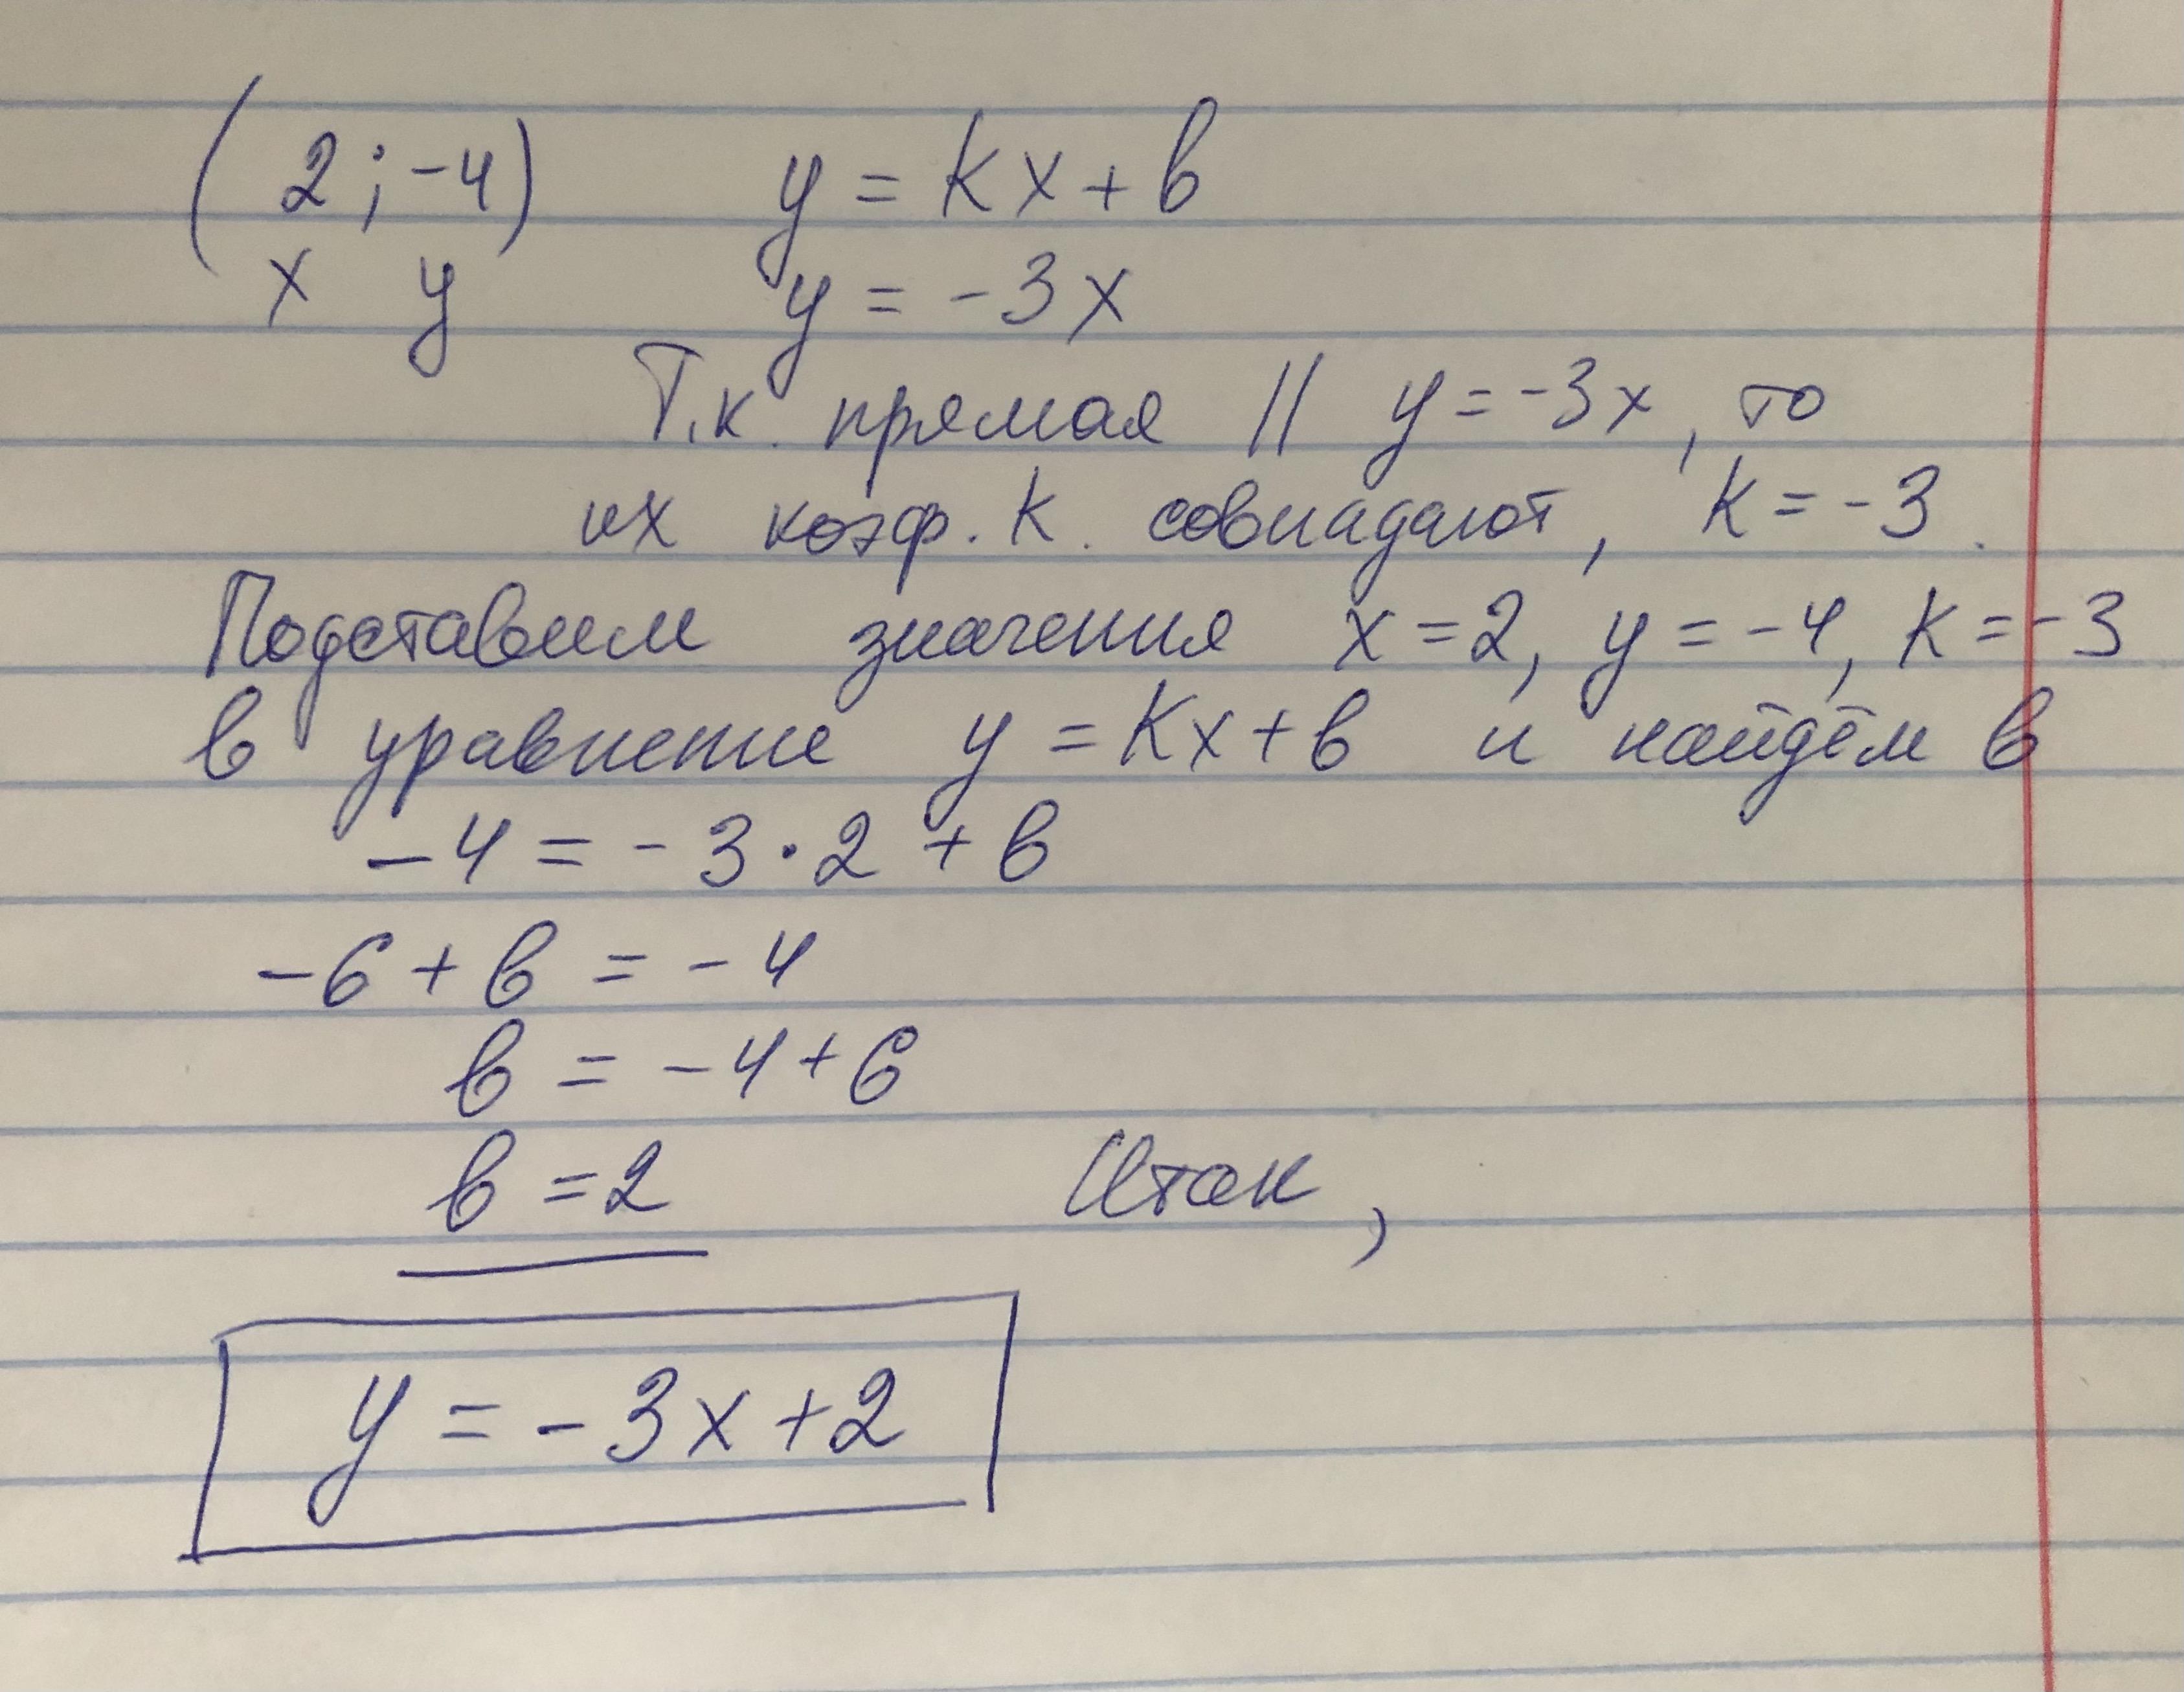 (2; -4) y = kx + b
x y y = -3x
Т.к. прямая || y = -3x, то
их коэф. k. совпадают, k = -3.
Подставим значения x = 2, y = -4, k = -3
в уравнение y = kx + b и найдём b
-4 = -3 · 2 + b
-6 + b = -4
b = -4 + 6
b = 2 Итак,
y = -3x + 2